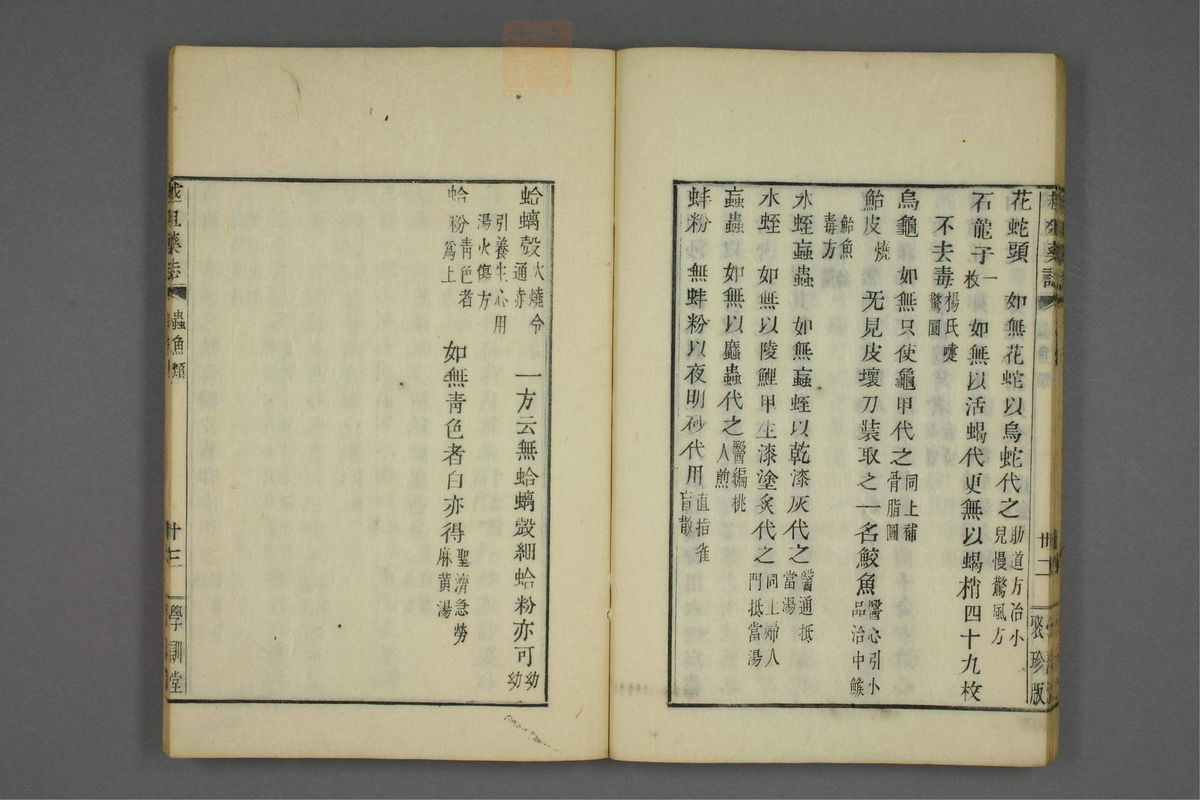 花蛇頭　如無花蛇以烏蛇代之助道方治小兒慢驚風方
石龍子一枚　如無以活蝎代更無以蝎梢四十九枚
不去毒楊氏嚏驚圓
烏龜　如無只使龜甲代之同上補骨脂圓
鮐皮燒　无見皮壞刀裝取之一名鮫魚醫心引小品治中鯸
鮐魚毒方
水蛭蝱蟲　如無蝱蛭以乾漆灰代之醫通抵當湯
水蛭　如無以陵鯉甲生漆塗炙代之同上婦人門抵當湯
蝱蟲　如無以䗪蟲代之醫編桃人煎
蚌粉　無蚌粉以夜明砂代用直指雀盲散
卅二
聚珍版
蛤蠣殼火燒令通赤　一方云無蛤蠣殼細蛤粉亦可幼幼
引養生必用湯火傷方
蛤粉青色者爲上　如無靑色者白亦得聖濟急勞麻黄湯
藥志
蟲魚類
卅三
學訓堂